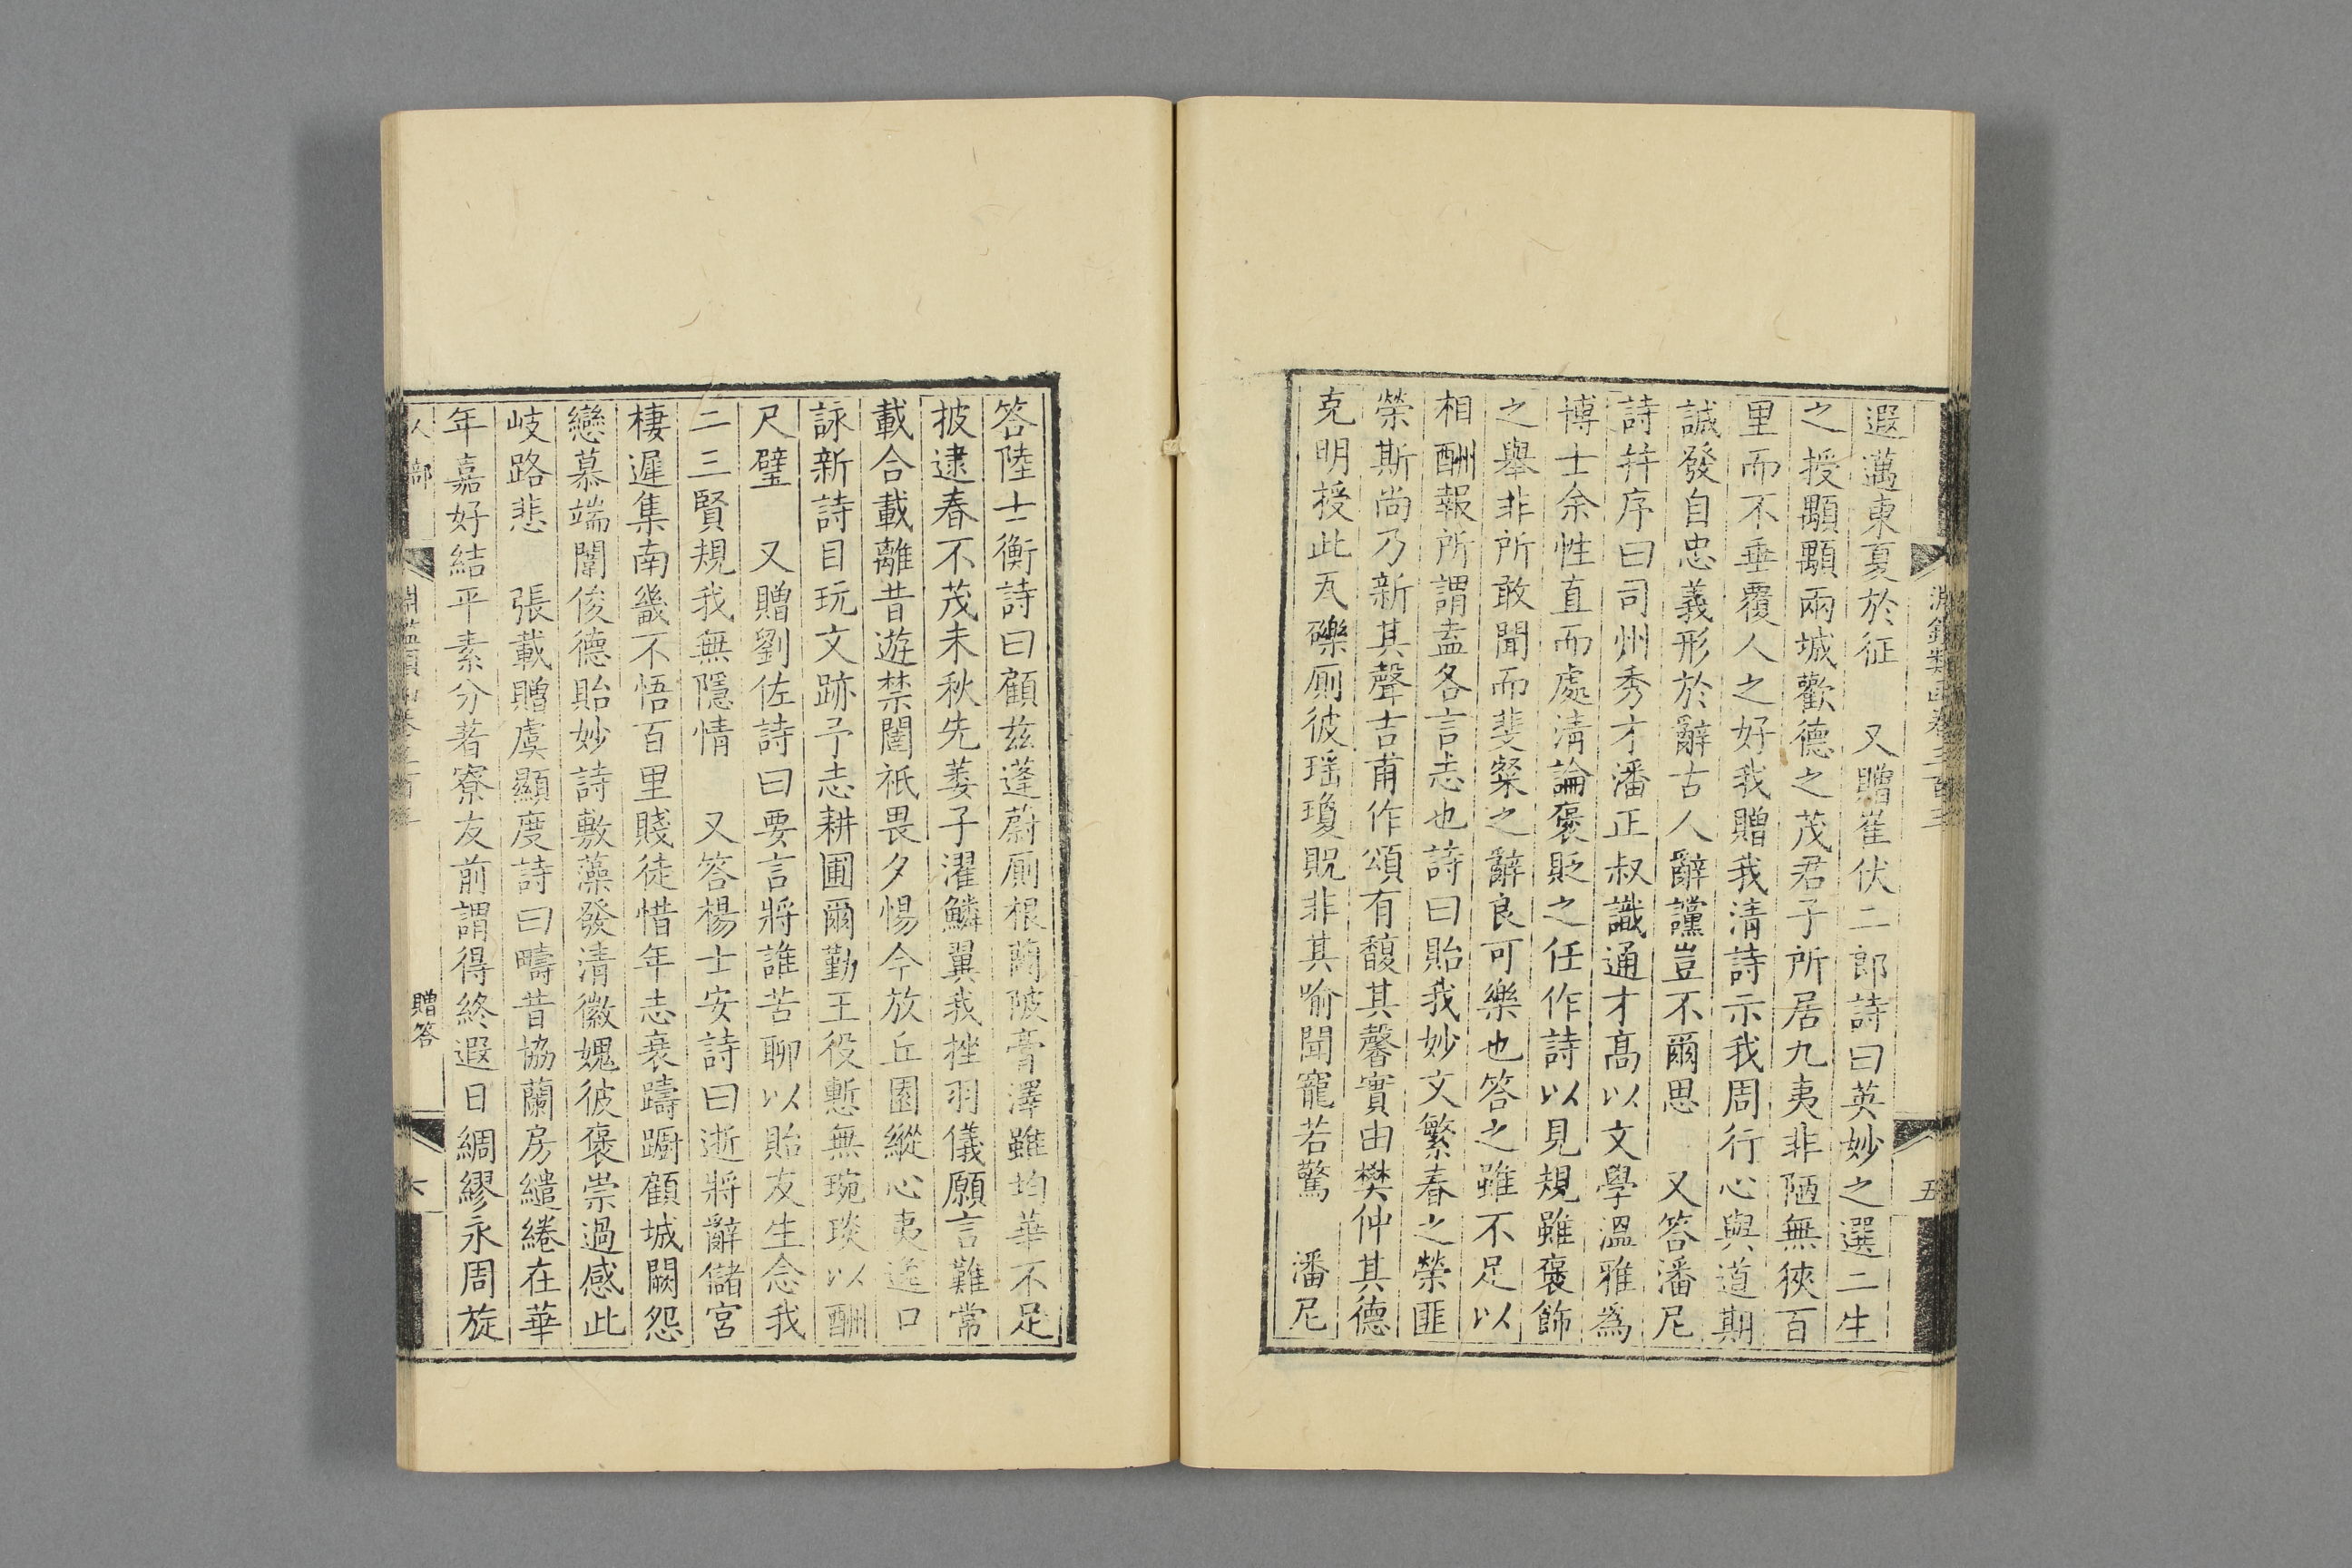 遐邁東夏於征　又贈崔伏二郎詩曰英妙之選二生
之授顒顒兩城歡德之茂君子所居九夷非陋無狹百
里而不垂覆人之好我贈我清詩示我周行心與道期
誠發自忠義形於辭古人辭讜豈不爾思　又答潘尼
詩幷序曰司州秀才潘正叔識通才高以文學溫雅為
博士余性直而處清論褒貶之任作詩以見規雖褒飾
之舉非所敢聞而斐粲之辭良可樂也答之雖不足以
相酬報所謂盍各言志也詩曰貽我妙文繁春之榮匪
榮斯尚乃新其聲吉甫作頌有馥其馨實由樊仲其德
克明授此瓦礫厠彼瑶瓊貺非其喻聞寵若驚　潘尼
五
答陸士衡詩曰顧兹蓬蔚厠根蘭陂膏澤雖均華不足
披逮春不茂未秋先萎子濯鱗翼我挫羽儀願言難常
載合載離昔遊禁闈祇畏夕惕今放丘園縱心夷逸口
詠新詩目玩文跡予志耕圃爾勤王役慙無琬琰以酬
尺璧　又贈劉佐詩曰要言將誰苦聊以貽友生念我
二三賢規我無隱情　又答楊士安詩曰逝將辭儲宮
棲遲集南畿不悟百里賤徒惜年志衰躊躕顧城闕怨
戀慕端闈俊德貽妙詩敷藻發清徽媿彼褒崇過感此
岐路悲　張載贈虞顯度詩曰疇昔協蘭房繾綣在華
年嘉好結平素分著寮友前謂得終遐日綢繆永周旋
人部
贈答
六